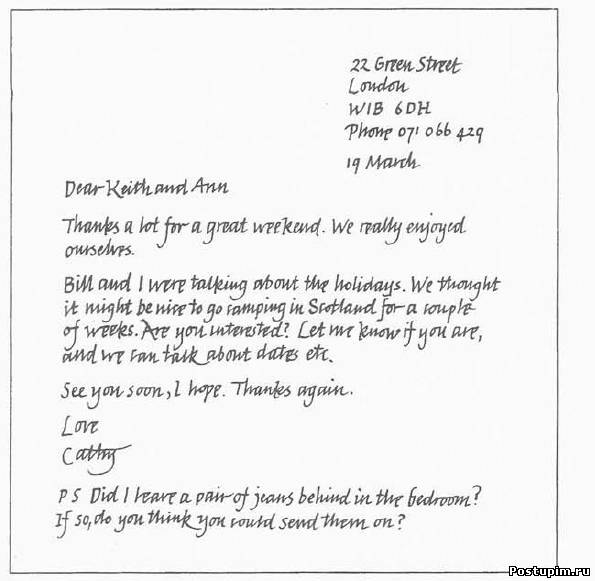 22 Green Street
London
W1B 6DH
Phone 071 066 429
19 March
Dear Keith and Ann
Thanks a lot for a great weekend. We really enjoyed
ourselves.
Bill and I were talking about the holidays. We thought
it might be nice to go camping in Scotland for a couple
of weeks. Are you interested? Let me know if you are,
and we can talk about dates etc.
See you soon, I hope. Thanks again.
Love
Cathy
PS Did I leave a pair of jeans behind in the bedroom?
If so, do you think you could send them on?
Postupim.ru